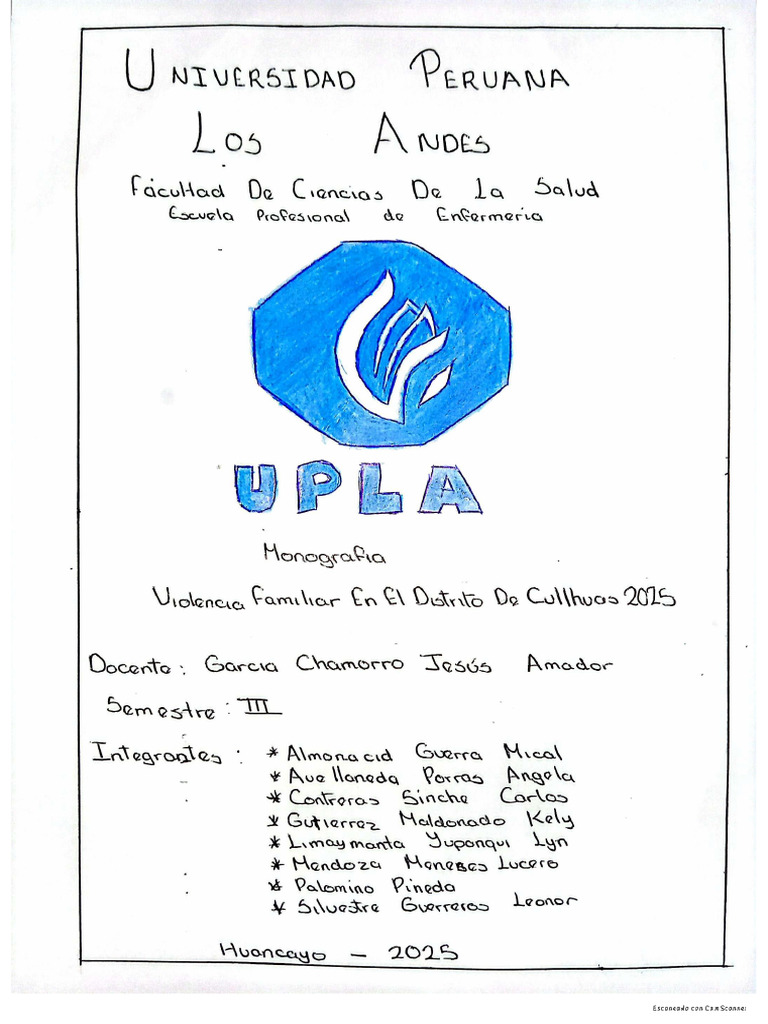 UNIVERSIDAD PERUANA
LOS ANDES
Facultad De Ciencias De La Salud
Escuela Profesional de Enfermeria
UPLA
Monografia
Violencia Familiar En El Distrito De Cullhuas 2025
Docente: Garcia Chamorro Jesús Amador
Semestre: III
Integrantes: * Almonacid Guerra Mical
* Avellaneda Porras Angela
* Contreras Sinche Carlos
* Gutierrez Maldonado Kely
* Limaymanta Yupanqui Lyn
* Mendoza Meneses Lucero
* Palomino Pineda
* Silvestre Guerreros Leonor
Huancayo - 2025
Escaneado con CamScanner